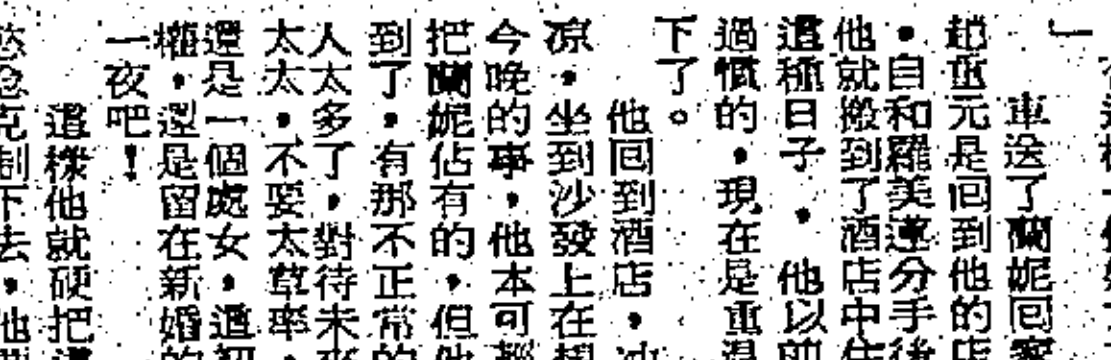 車送了蘭妮回家
趙重元是回到他的店
，自和羅美蓮分手後
他就搬到了酒店中住
這種日子，他以前
過慣的，現在是重溫
下了。
他回到酒店，沖
凉，坐到沙發上在想
今晚的事，他本可輕
把蘭妮佔有的，但他
到了，有那不正常的
人太多了，對待未來
太太，不要太草率，
還是一個處女，這初
權，還是留在新婚的
一夜吧！
這樣他就硬把這
慾念克制下去，他